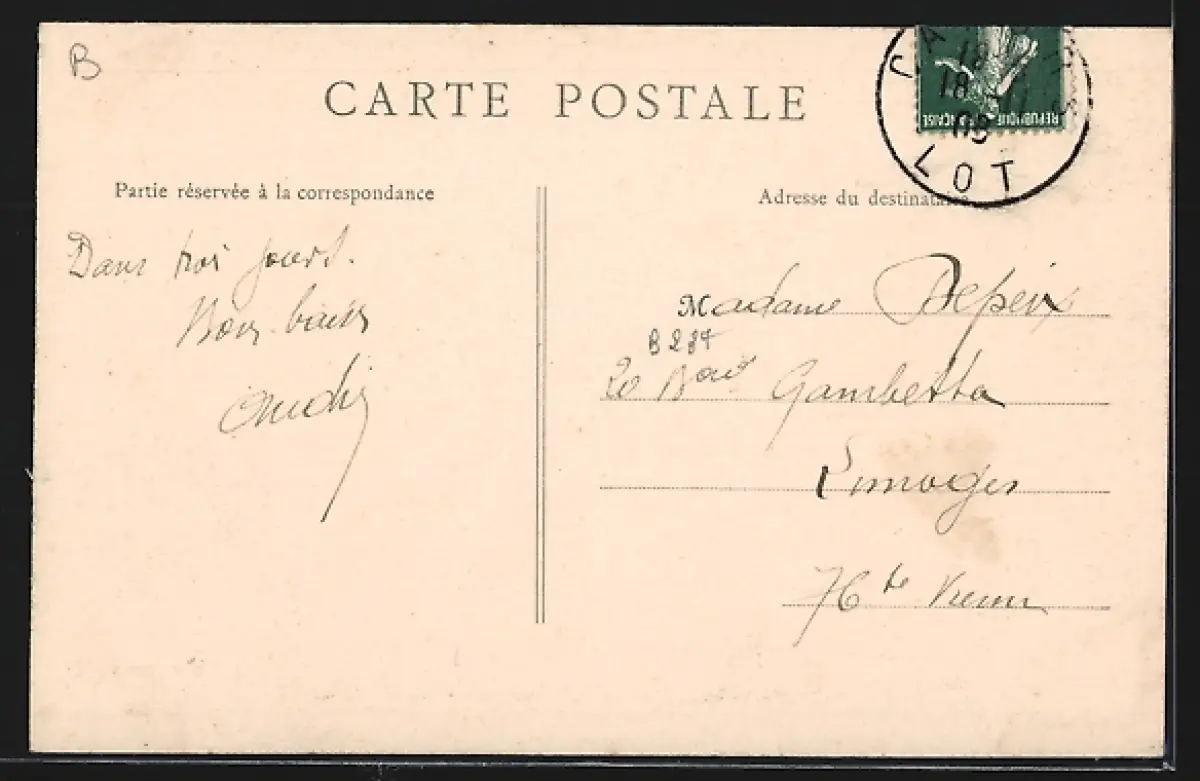 B
CARTE POSTALE
RÉPUBLIQUE FRANÇAISE
18
09
LOT
Partie réservée à la correspondance
Dans trois jours.
Bons baisers
Adresse du destinataire
Madame Depeix
B 284
20 Bard Gambetta
Limoges
Hte Vienne